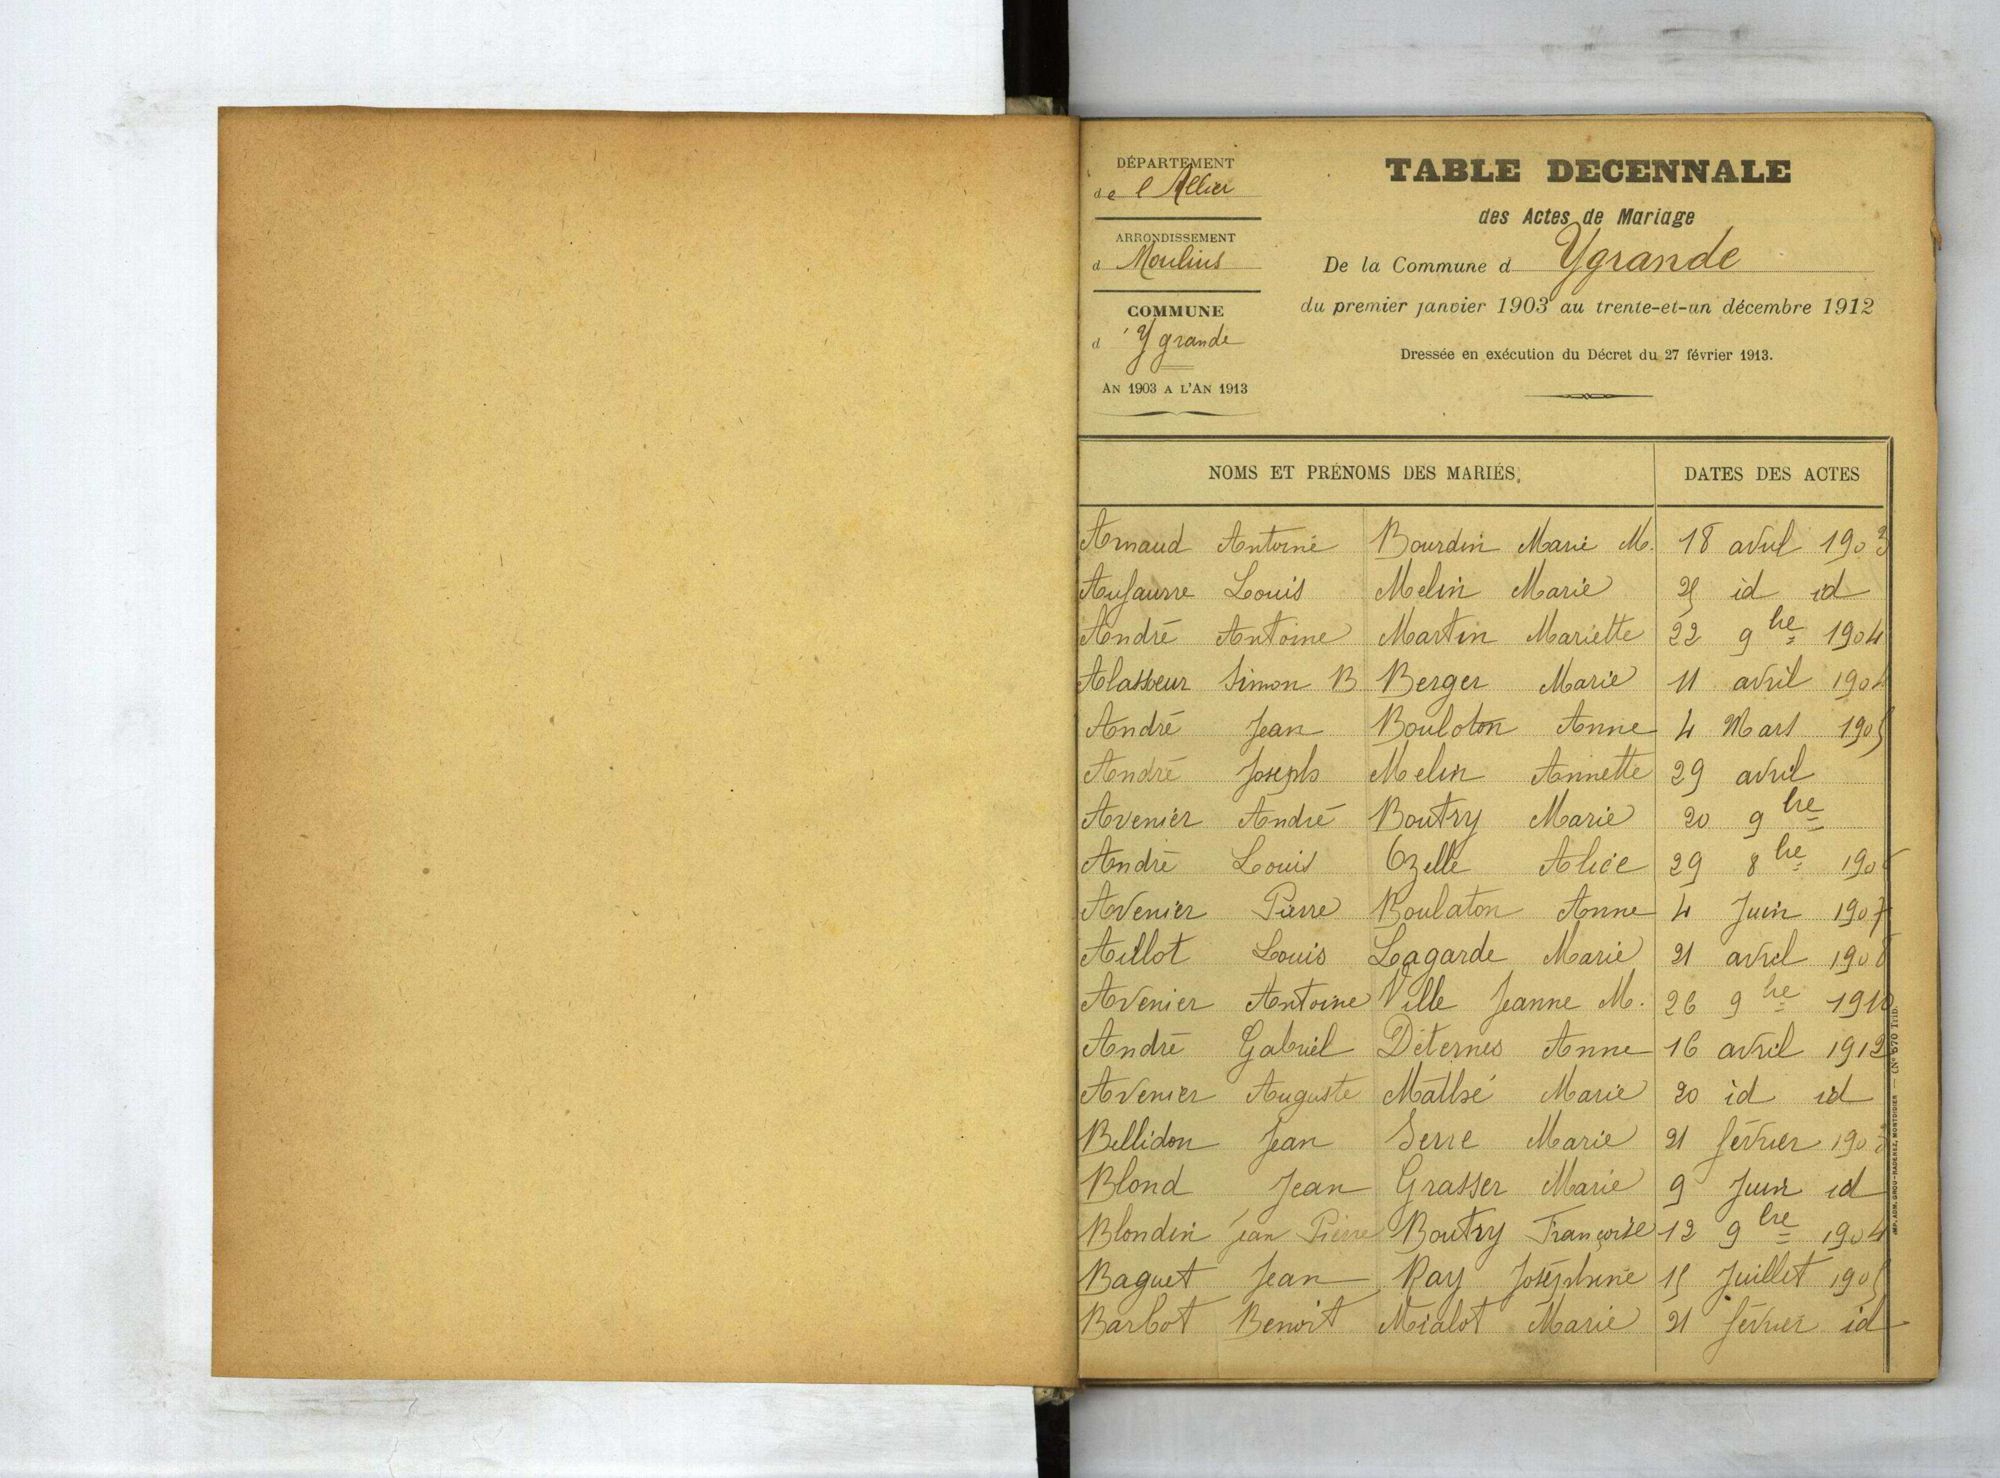 DÉPARTEMENT
de l'Allier
ARRONDISSEMENT
d Moulins
COMMUNE
d'Ygrande
AN 1903 A L'AN 1913
TABLE DECENNALE
des Actes de Mariage
De la Commune d Ygrande
du premier janvier 1903 au trente-et-un décembre 1912
Dressée en exécution du Décret du 27 février 1913.
NOMS ET PRÉNOMS DES MARIÉS. DATES DES ACTES
Arnaud Antoine Bourdin Marie M. 18 avril 1903
Aufauvre Louis Melin Marie 25 id id
André Antoine Martin Mariette 22 9bre 1904
Alasseur Simon B Berger Marie 11 avril 1904
André Jean Bouloton Anne 4 Mars 1905
André Joseph Melin Annette 29 avril
Avenier André Boutry Marie 20 9bre
André Louis Ozelle Alice 29 8bre 190
Avenier Pierre Boulaton Anne 4 Juin 1907
Aillot Louis Lagarde Marie 21 avril 1908
Avenier Antoine Ville Jeanne M. 26 9bre 1910
André Gabriel Déternes Anne 16 avril 1912
Avenier Auguste Mathé Marie 20 id id
Bellidon Jean Serre Marie 21 février 1903
Blond Jean Grasser Marie 9 Juin id
Blondin Jean Pierre Boutry Françoise 12 9bre 1904
Baguet Jean Ray Joséphine 15 Juillet 1905
Barbot Benoit Mialot Marie 21 février id
IMP. ADM. GROU-RADENEZ, MONTDIDIER — (N° 570 Trib.